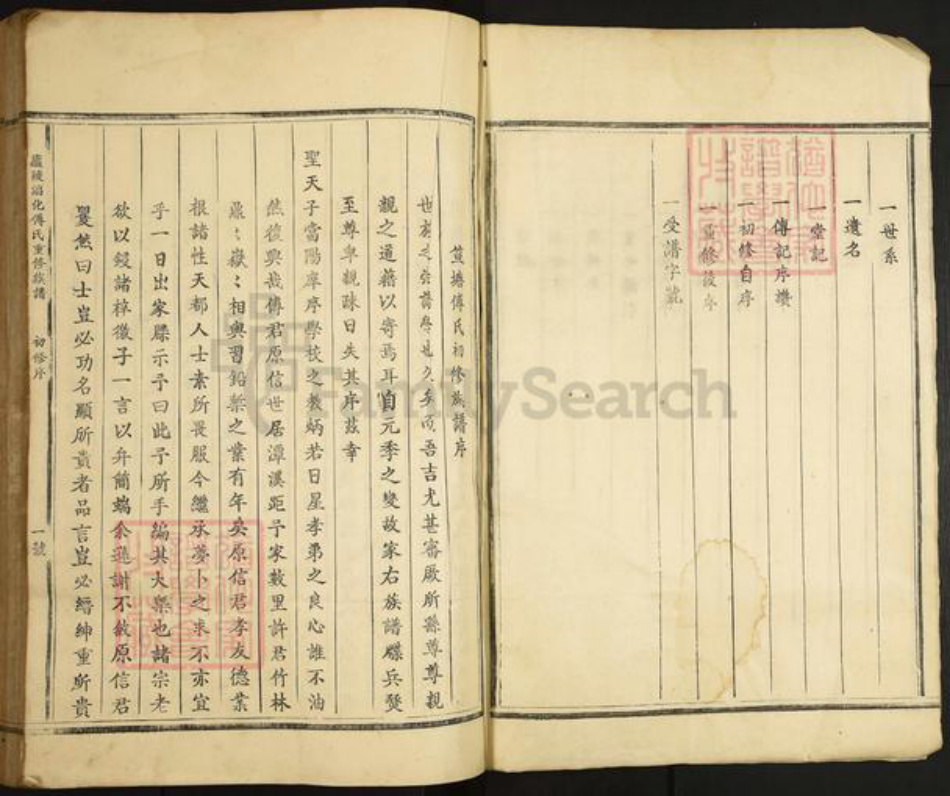 一世系
一遺名
一堂記
一傳記序讚
一初修自序
一重修後序
一受譜字號
傅氏初修族譜序
世系之失講學也久矣而吾吉尤甚審厥所繇尊尊親
親之道藉以寄焉耳自元季之變故家右族譜牒兵燹
至尊卑親疎日失其序茲幸
聖天子當陽庠序學校之教炳若日星孝弟之良心誰不油
然復興哉傅君原信世居潭溪距予家數里許君竹林
嶽嶽相與習鉛槧之業有年矣原信君孝友德業
根諸性天都人士素所畏服今繼承夢卜之來不亦宜
乎一日出家牒示予曰此予所手編其大槩也諸宗老
欲以鋟諸梓徵子一言以弁簡端余遜謝不敏原信君
曰士豈必功名顯所貴者品言豈必縉紳重所貴
廬陵 化傅氏重修族譜
初修序
一號
FamilySearch